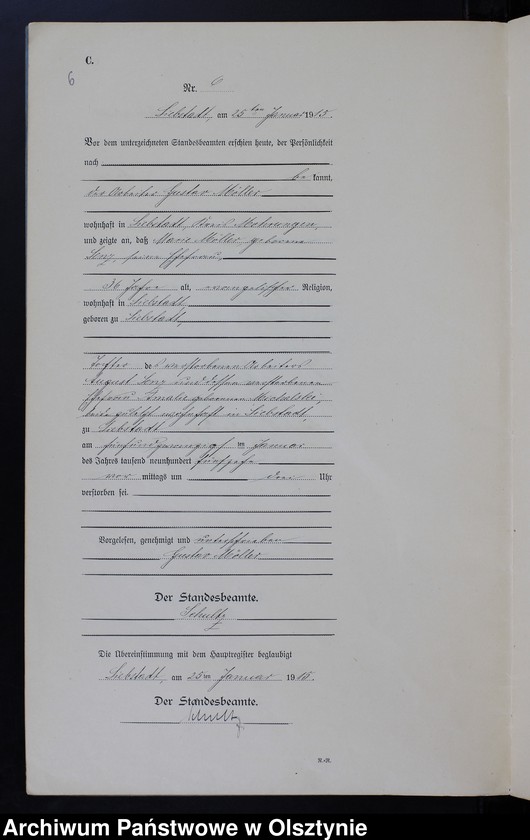 C.
6
Nr. 6
Liebstadt, am 25ten Januar 1915.
Vor dem unterzeichneten Standesbeamten erschien heute, der Persönlichkeit
nach
be kannt,
der Arbeiter Gustav Möller
wohnhaft in Liebstadt, Kreis Mohrungen,
und zeigte an, daß Marie Möller geborene
seine Ehefrau,
36 Jahre alt, evangelischer Religion,
wohnhaft in Liebstadt,
geboren zu Liebstadt,
Tochter des verstorbenen Arbeiters
August und dessen verstorbenen
Ehefrau Amalie geborenen Michalski,
beide zuletzt wohnhaft in Liebstadt,
zu Liebstadt
am fünfundzwanzigsten Januar
des Jahres tausend neunhundert fünfzehn
vor mittags um drei Uhr
verstorben sei.
Vorgelesen, genehmigt und unterschrieben
Gustav Möller
Der Standesbeamte.
Schultz
Die Übereinstimmung mit dem Hauptregister beglaubigt
Liebstadt, am 25ten Januar 1915.
Der Standesbeamte.
Schultz
R.-R.
Archiwum Państwowe w Olsztynie